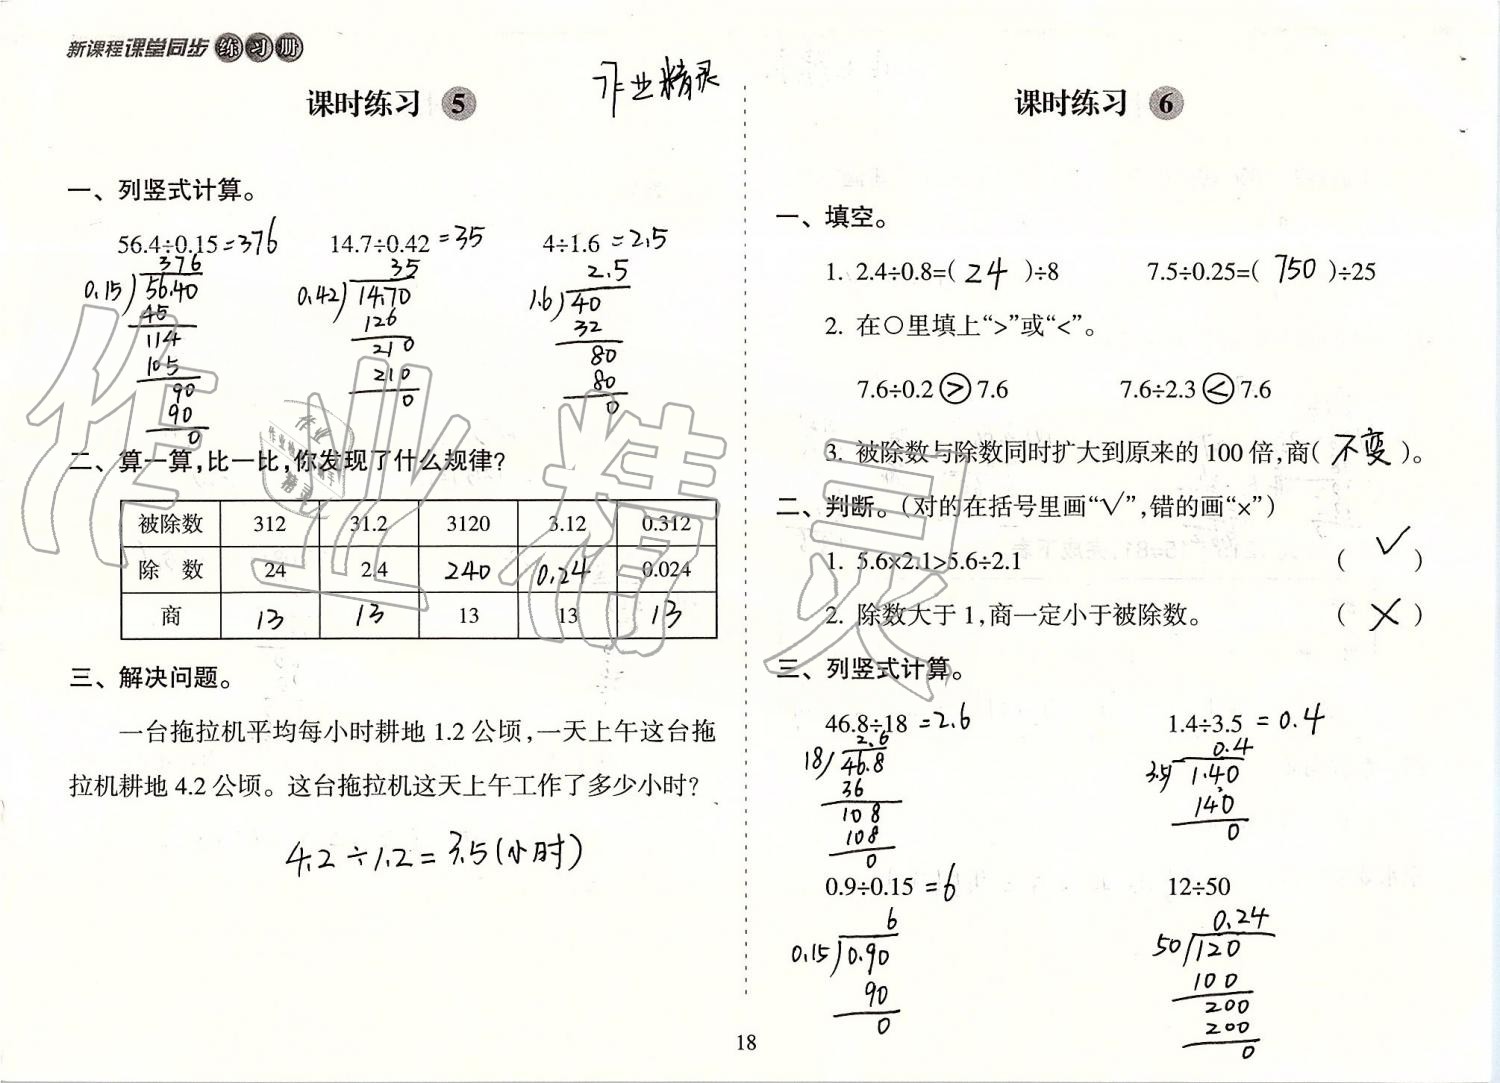 新课程课堂同步练习册
作业精灵
课时练习 5
一、列竖式计算。
56.4÷0.15=376 14.7÷0.42=35 4÷1.6=2.5
376 35 2.5
0.15 56.40 0.42 14.70 1.6 40
45 126 32
114 210 80
105 210 80
90 0 0
90
0
二、算一算,比一比,你发现了什么规律?
被除数 312 31.2 3120 3.12 0.312
除 数 24 2.4 240 0.24 0.024
商 13 13 13 13 13
三、解决问题。
一台拖拉机平均每小时耕地 1.2 公顷,一天上午这台拖
拉机耕地 4.2 公顷。这台拖拉机这天上午工作了多少小时?
4.2÷1.2=3.5(小时)
课时练习 6
一、填空。
1. 2.4÷0.8=( 24 )÷8 7.5÷0.25=( 750 )÷25
2. 在○里填上“>”或“<”。
7.6÷0.2 > 7.6 7.6÷2.3 < 7.6
3. 被除数与除数同时扩大到原来的 100 倍,商( 不变 )。
二、判断。(对的在括号里画“√”,错的画“×”)
1. 5.6×2.1>5.6÷2.1 ( √ )
2. 除数大于 1,商一定小于被除数。 ( × )
三、列竖式计算。
46.8÷18 =2.6 1.4÷3.5 =0.4
2.6 0.4
18 46.8 3.5 1.40
36 140
108 0
108
0
0.9÷0.15 =6 12÷50
6 0.24
0.15 0.90 50 120
90 100
0 200
200
0
18
作业精灵